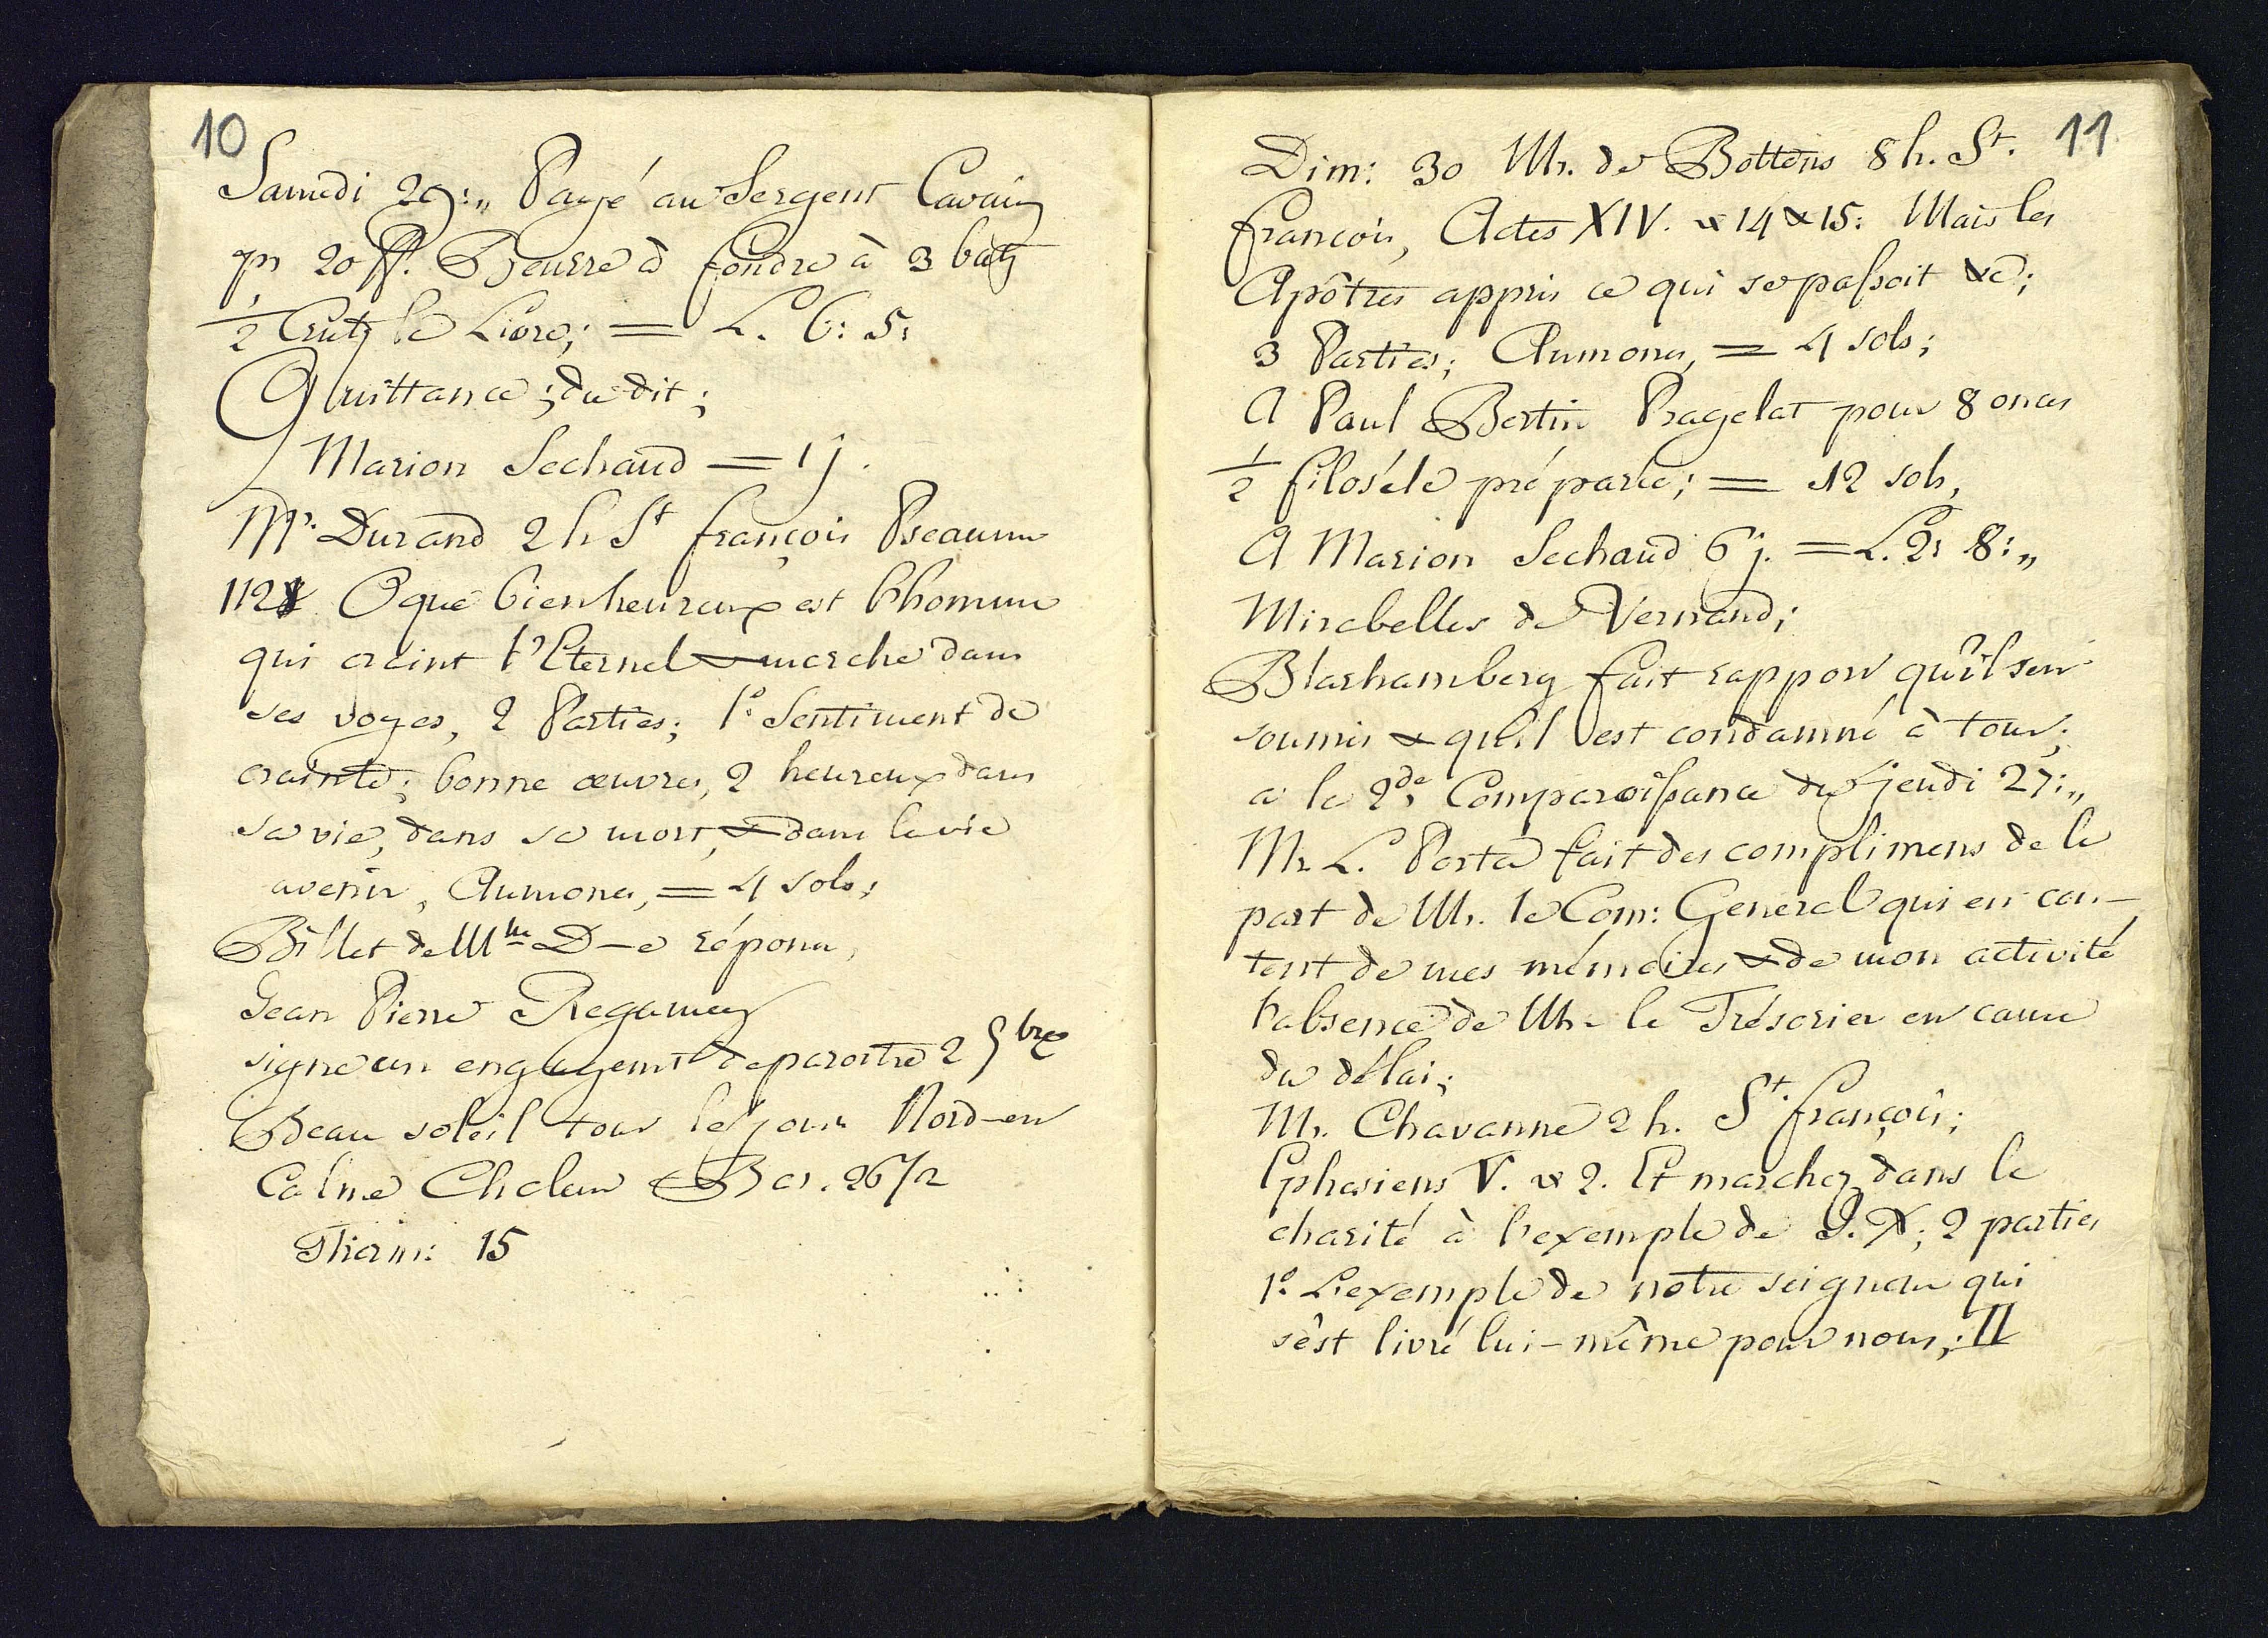 10
Samedi 29:,, Payé au Sergent Cavain
pr 20 ff. Beurre à fondre à 3 batz
1/2 Crutz la Livre; = L. 6: 5:
Quittance; du dit;
Marion Sechaud = 1 j.
Mr. Durand 2 h St françois Pseaume
112 O que bienheureux est l'homme
qui craint l'Eternel & marche dans
ses voyes, 2 Parties; 1º. Sentiment de
crainte; bonne œuvres, 2 heureux dans
sa vie, dans sa mort, & dans la vie
avenir, Aumones, = 4 sols;
Billet de Mlle D-e réponse,
Jean Pierre Regamey
signe un engagemt de paroitre 2 9bre
Beau soleil tous le jour Nord-en
Calme Chaleur Bar. 26/2
Therm: 15
11
Dim: 30 Mr. de Bottens 8 h. St.
françois, Actes XIV. v 14 & 15: Mais les
Apôtres appris ce qui se passoit &c;
3 Parties; Aumones, = 4 sols;
A Paul Bertin Pragelat pour 8 onces
1/2 filoséle préparée; = 12 sols,
A Marion Sechaud 6 j. = L. 2: 8:,,
Mirabelles de Vernand;
Blashamberg fait rapport qu'il s'en
soumis & qu'il est condamné à tour;
a la 2de. Comparoissance du jeudi 27:,,
Mr. L. Porta fait des complimens de la
part de Mr. le Com: General qui en con-
tent de mes mémoires & de mon activité
l'absence de Mr. le Trésorier en cause
du délai;
Mr. Chavanne 2 h. St. françois;
Ephesiens V. v 2. Et marchez dans la
charité à l'exemple de J. X; 2 parties
1º. L'exemple de notre seigneur qui
s'est livré lui-même pour nous; II